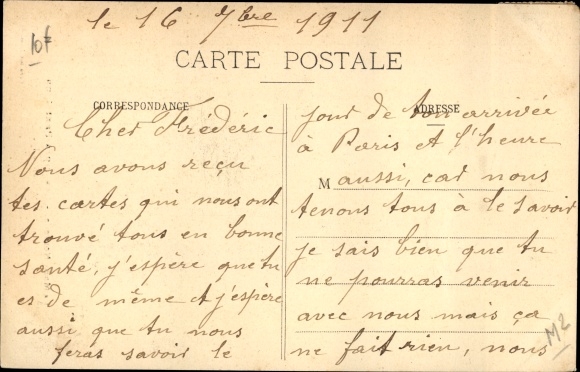 le 16 7bre 1911
10f
CARTE POSTALE
CORRESPONDANCE
Cher Frédéric
Nous avons reçu
tes cartes qui nous ont
trouvé tous en bonne
santé, j'espère que tu
es de même et j'espère
aussi que tu nous
feras savoir le
ADRESSE
jour de ton arrivée
à Paris et l'heure
M aussi, car nous
tenons tous à le savoir
je sais bien que tu
ne pourras venir
avec nous mais ça
ne fait rien, nous
M2